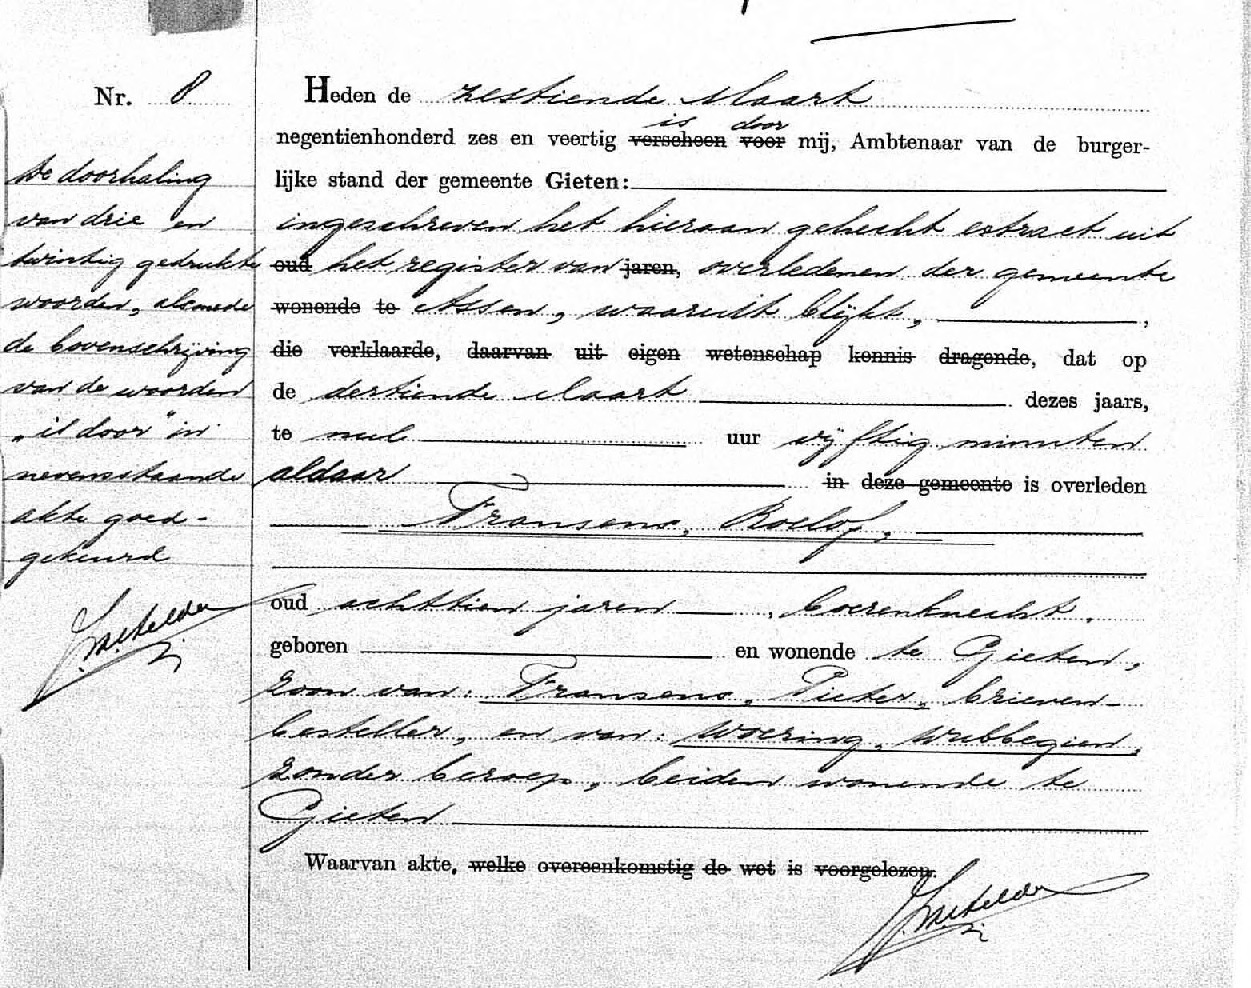 Nr. 8
De doorhaling
van drie en
twintig gedrukte
woorden, alsmede
de bovenschrijving
van de woorden
„is door" in
nevenstaande
akte goed-
gekeurd
Heden de zestiende Maart
is door
negentienhonderd zes en veertig verscheen voor mij, Ambtenaar van de burger-
lijke stand der gemeente Gieten:
ingeschreven het hieraan gehecht extract uit
oud het register van jaren, overledenen der gemeente
wonende te Assen, waaruit blijkt,
die verklaarde, daarvan uit eigen wetenschap kennis dragende, dat op
de dertiende Maart dezes jaars,
te nul uur vijftig minuten
aldaar in deze gemeente is overleden
Fransens, Roelof,
oud achttien jaren, boerenknecht,
geboren en wonende te Gieten,
zoon van: Fransens, Pieter, brieven-
besteller, en van: Woering, Wubbegien,
zonder beroep, beiden wonende te
Gieten
Waarvan akte, welke overeenkomstig de wet is voorgelezen.